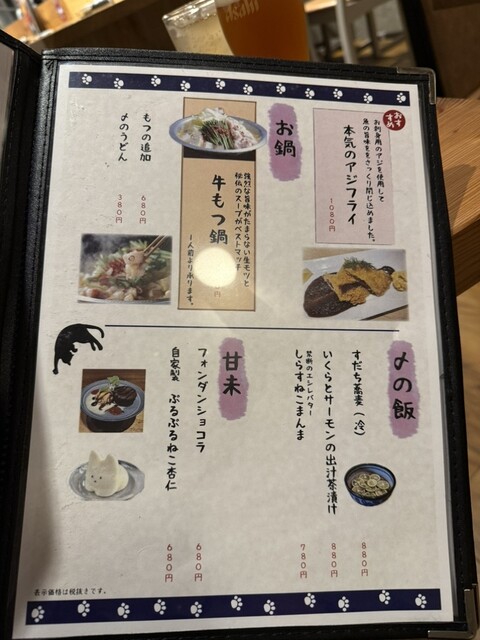 Asahi
おすすめ
お刺身用のアジを使用して
魚の旨味をさっくり閉じ込めました。
本気のアジフライ
1080円
お鍋
強烈な旨味がたまらない生モツと
秘伝のスープがベストマッチ
牛もつ鍋
円
1人前より承ります。
もつの追加
680円
〆のうどん
380円
〆の飯
すだち蕎麦（冷）
880円
いくらとサーモンの出汁茶漬け
880円
禁断のエシレバター
しらすねこまんま
780円
甘未
フォンダンショコラ
680円
自家製 ぷるぷるねこ杏仁
680円
表示価格は税抜きです。